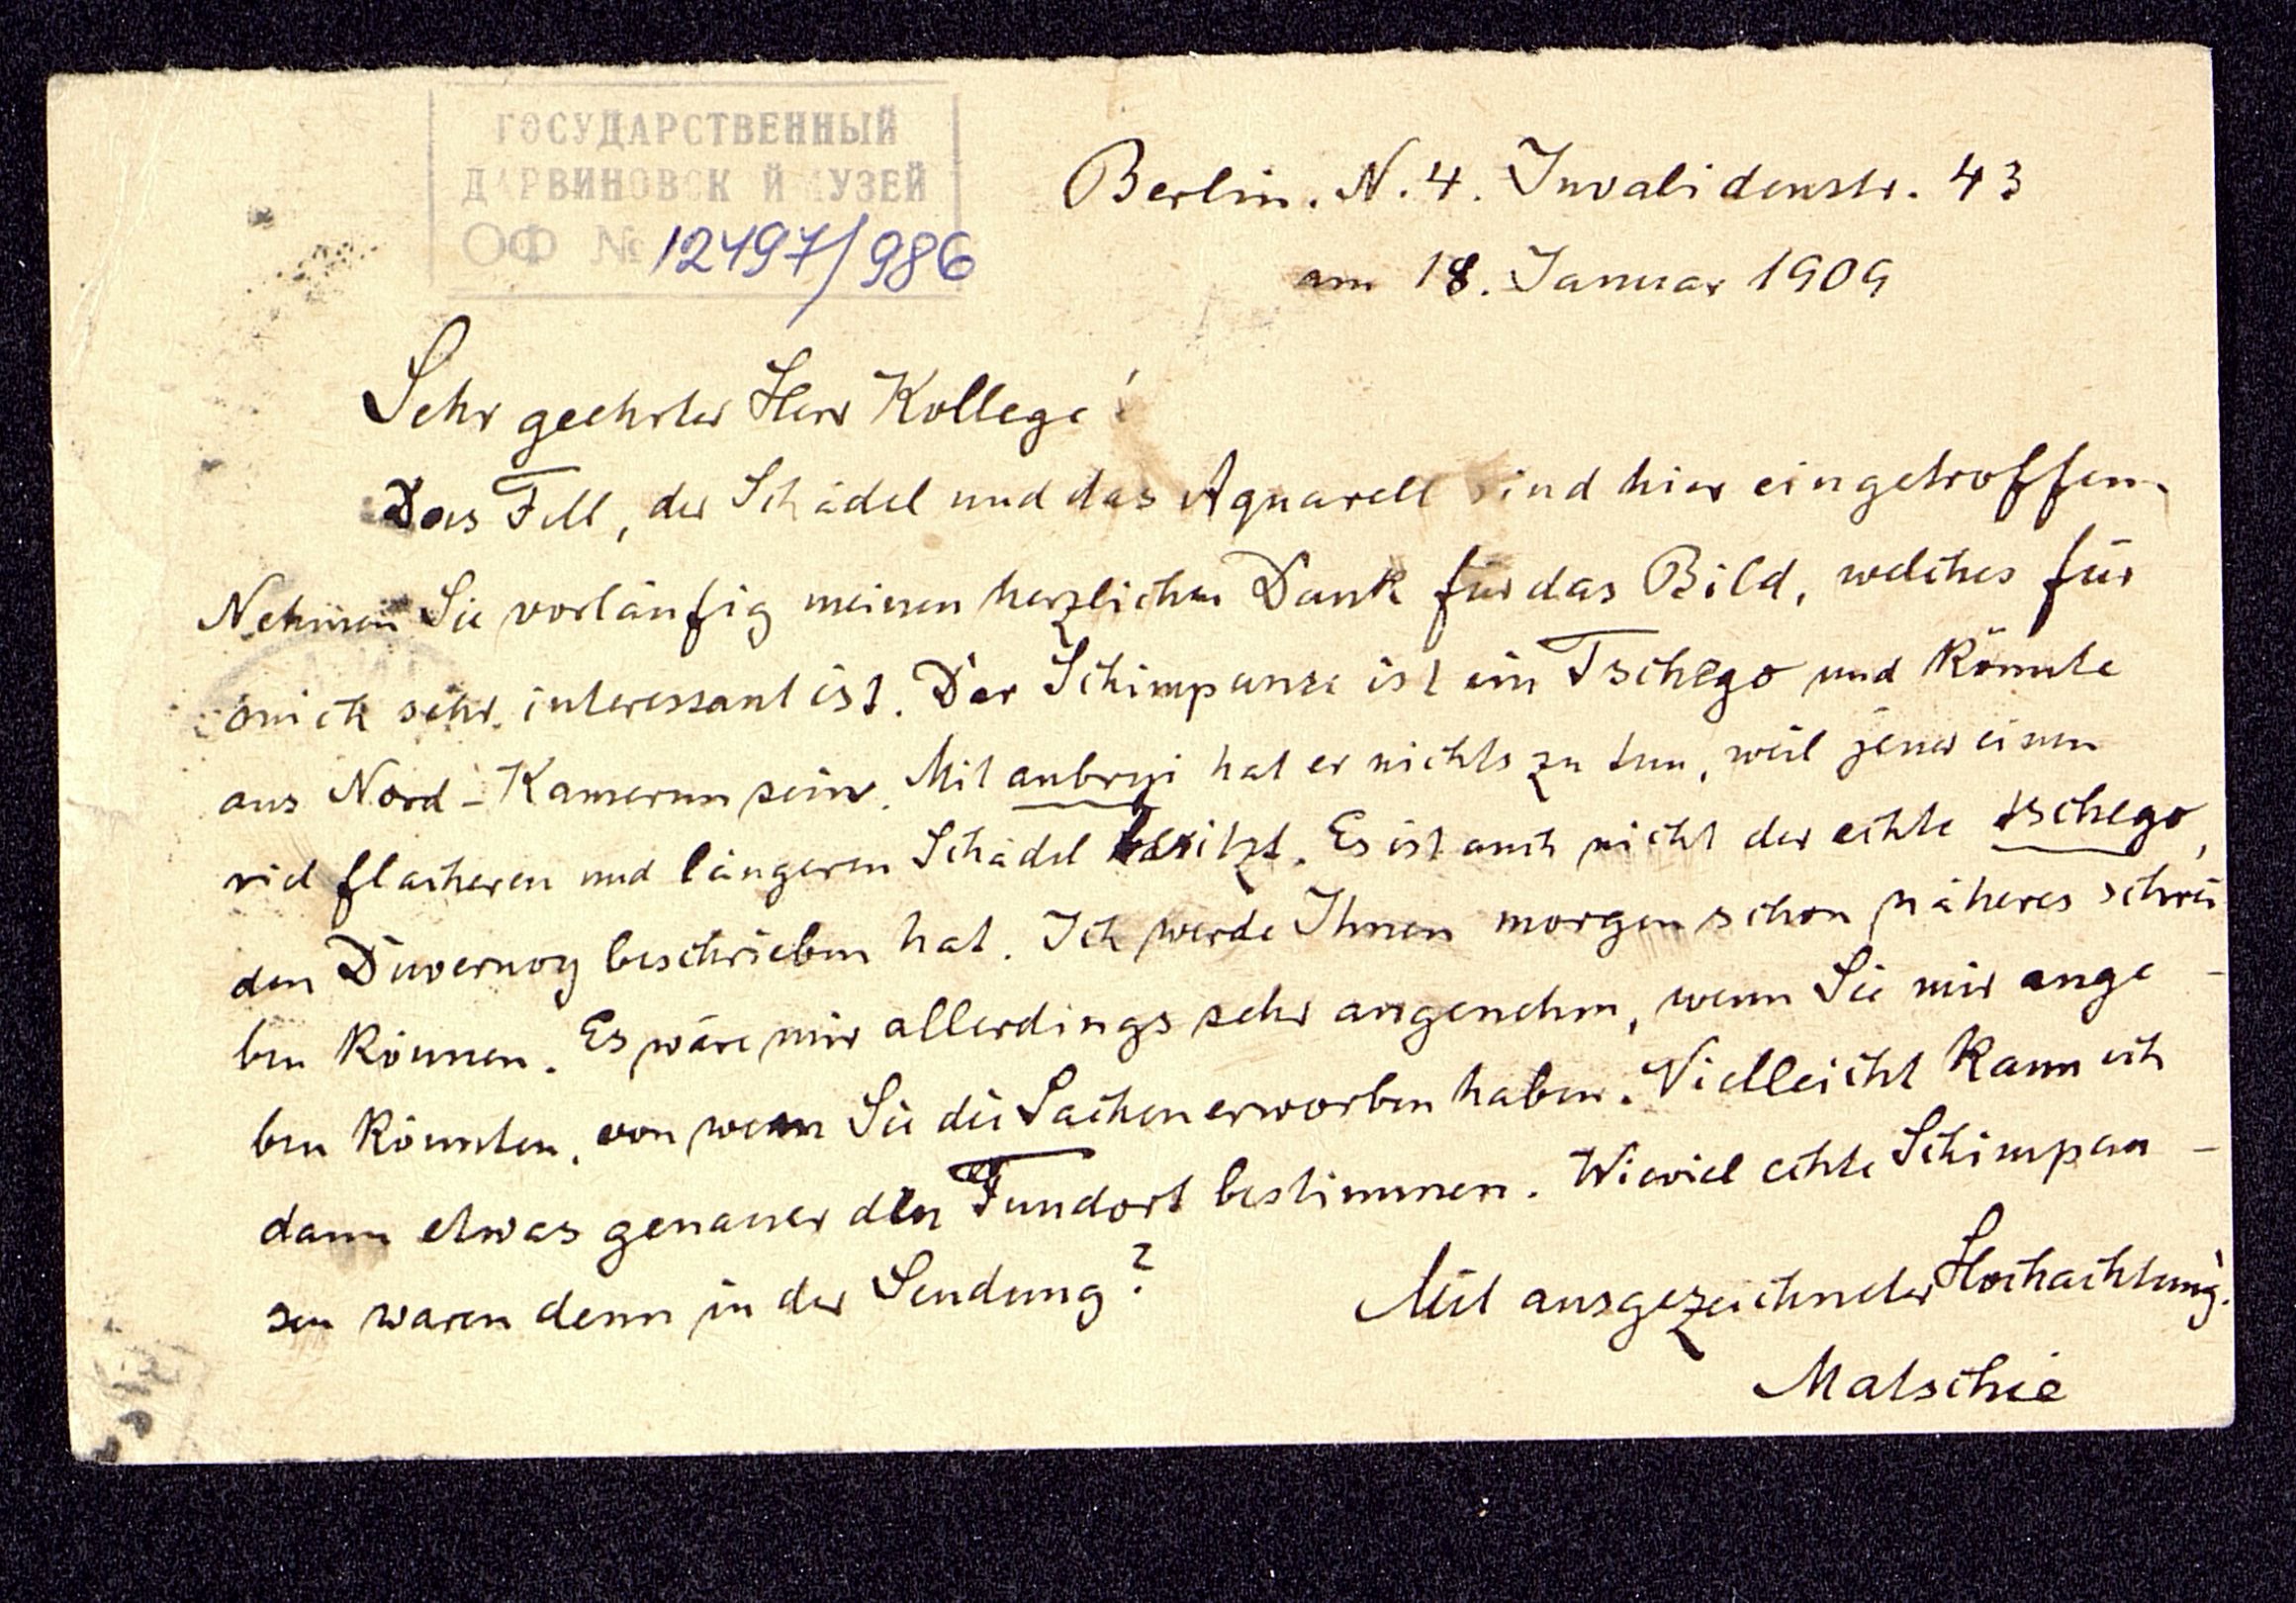 ГОСУДАРСТВЕННЫЙ
ДАРВИНОВСК Й МУЗЕЙ
ОФ № 12497/986
Berlin. N. 4. Invalidenstr. 43
am 18. Januar 1909
Sehr geehrter Herr Kollege!
Das Fell, der Schädel und das Aquarell sind hier eingetroffen.
Nehmen Sie vorläufig meinen herzlichen Dank für das Bild, welches für
mich sehr interessant ist. Der Schimpanse ist ein Tschego und könnte
aus Nord-Kamerun sein. Mit aubryi hat er nichts zu tun, weil jener einen
viel flacheren und längeren Schädel besitzt. Es ist auch nicht der echte tschego,
den Duvernoy beschrieben hat. Ich werde Ihnen morgen schon näheres schrei
ben können. Es wäre mir allerdings sehr angenehm, wenn Sie mir ange-
ben könnten, von wem Sie die Sachen erworben haben. Vielleicht kann ich
dann etwas genauer den Fundort bestimmen. Wieviel echte Schimpan-
sen waren denn in der Sendung?
Mit ausgezeichneter Hochachtung.
Matschie